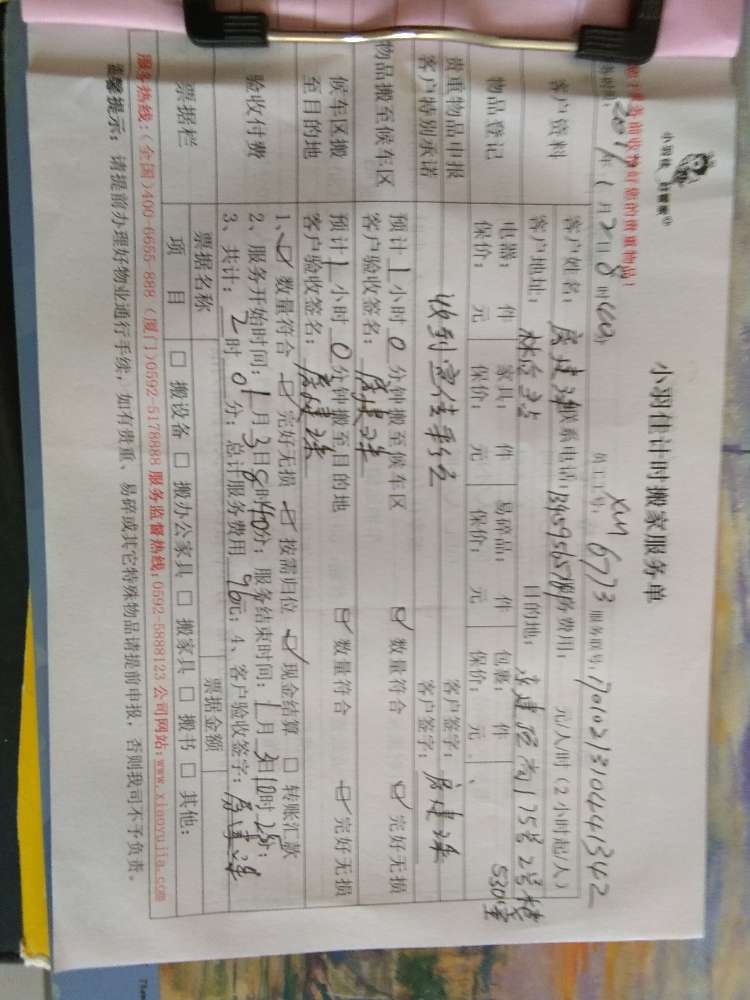 小羽佳计时搬家服务单
小羽佳 好管家
2017年1月2日8时
员工工号: xm6773 服务账号: 17010213104441342
客户资料
客户姓名: 联系电话: 服务费用: 元/人时（2小时起/人）
客户地址: 目的地:
530室
物品登记
电器: 件 家具: 件 易碎品: 件 包裹: 件
保价: 元 保价: 元 保价: 元 保价: 元
贵重物品申报 客户签字:
客户特别承诺 客户签字:
物品搬至候车区
预计1小时0分钟搬至候车区 ☑ 数量符合 ☑ 完好无损
客户验收签名:
候车区搬至目的地
预计1小时0分钟搬至目的地 ☑ 数量符合 ☑ 完好无损
客户验收签名:
验收付费
1、☑ 数量符合 ☑ 完好无损 ☑ 按需归位 ☑ 现金结算 □ 转账汇款
2、服务开始时间: 1月3日8时40分; 服务结束时间: 1月3日10时25分;
3、共计: 2时0分; 总计服务费用 96元; 4、客户验收签字:
票据栏
票据名称 票据金额
项目 □ 搬设备 □ 搬办公家具 □ 搬家具 □ 搬书 □ 其他:
服务热线:(全国)400-6655-888 (厦门)0592-5178888 服务监督热线:0592-5888123 公司网站:www.xiaoyujia.com
温馨提示: 请提前办理好物业通行手续, 如有贵重、易碎或其它特殊物品请提前申报, 否则我司不予负责。